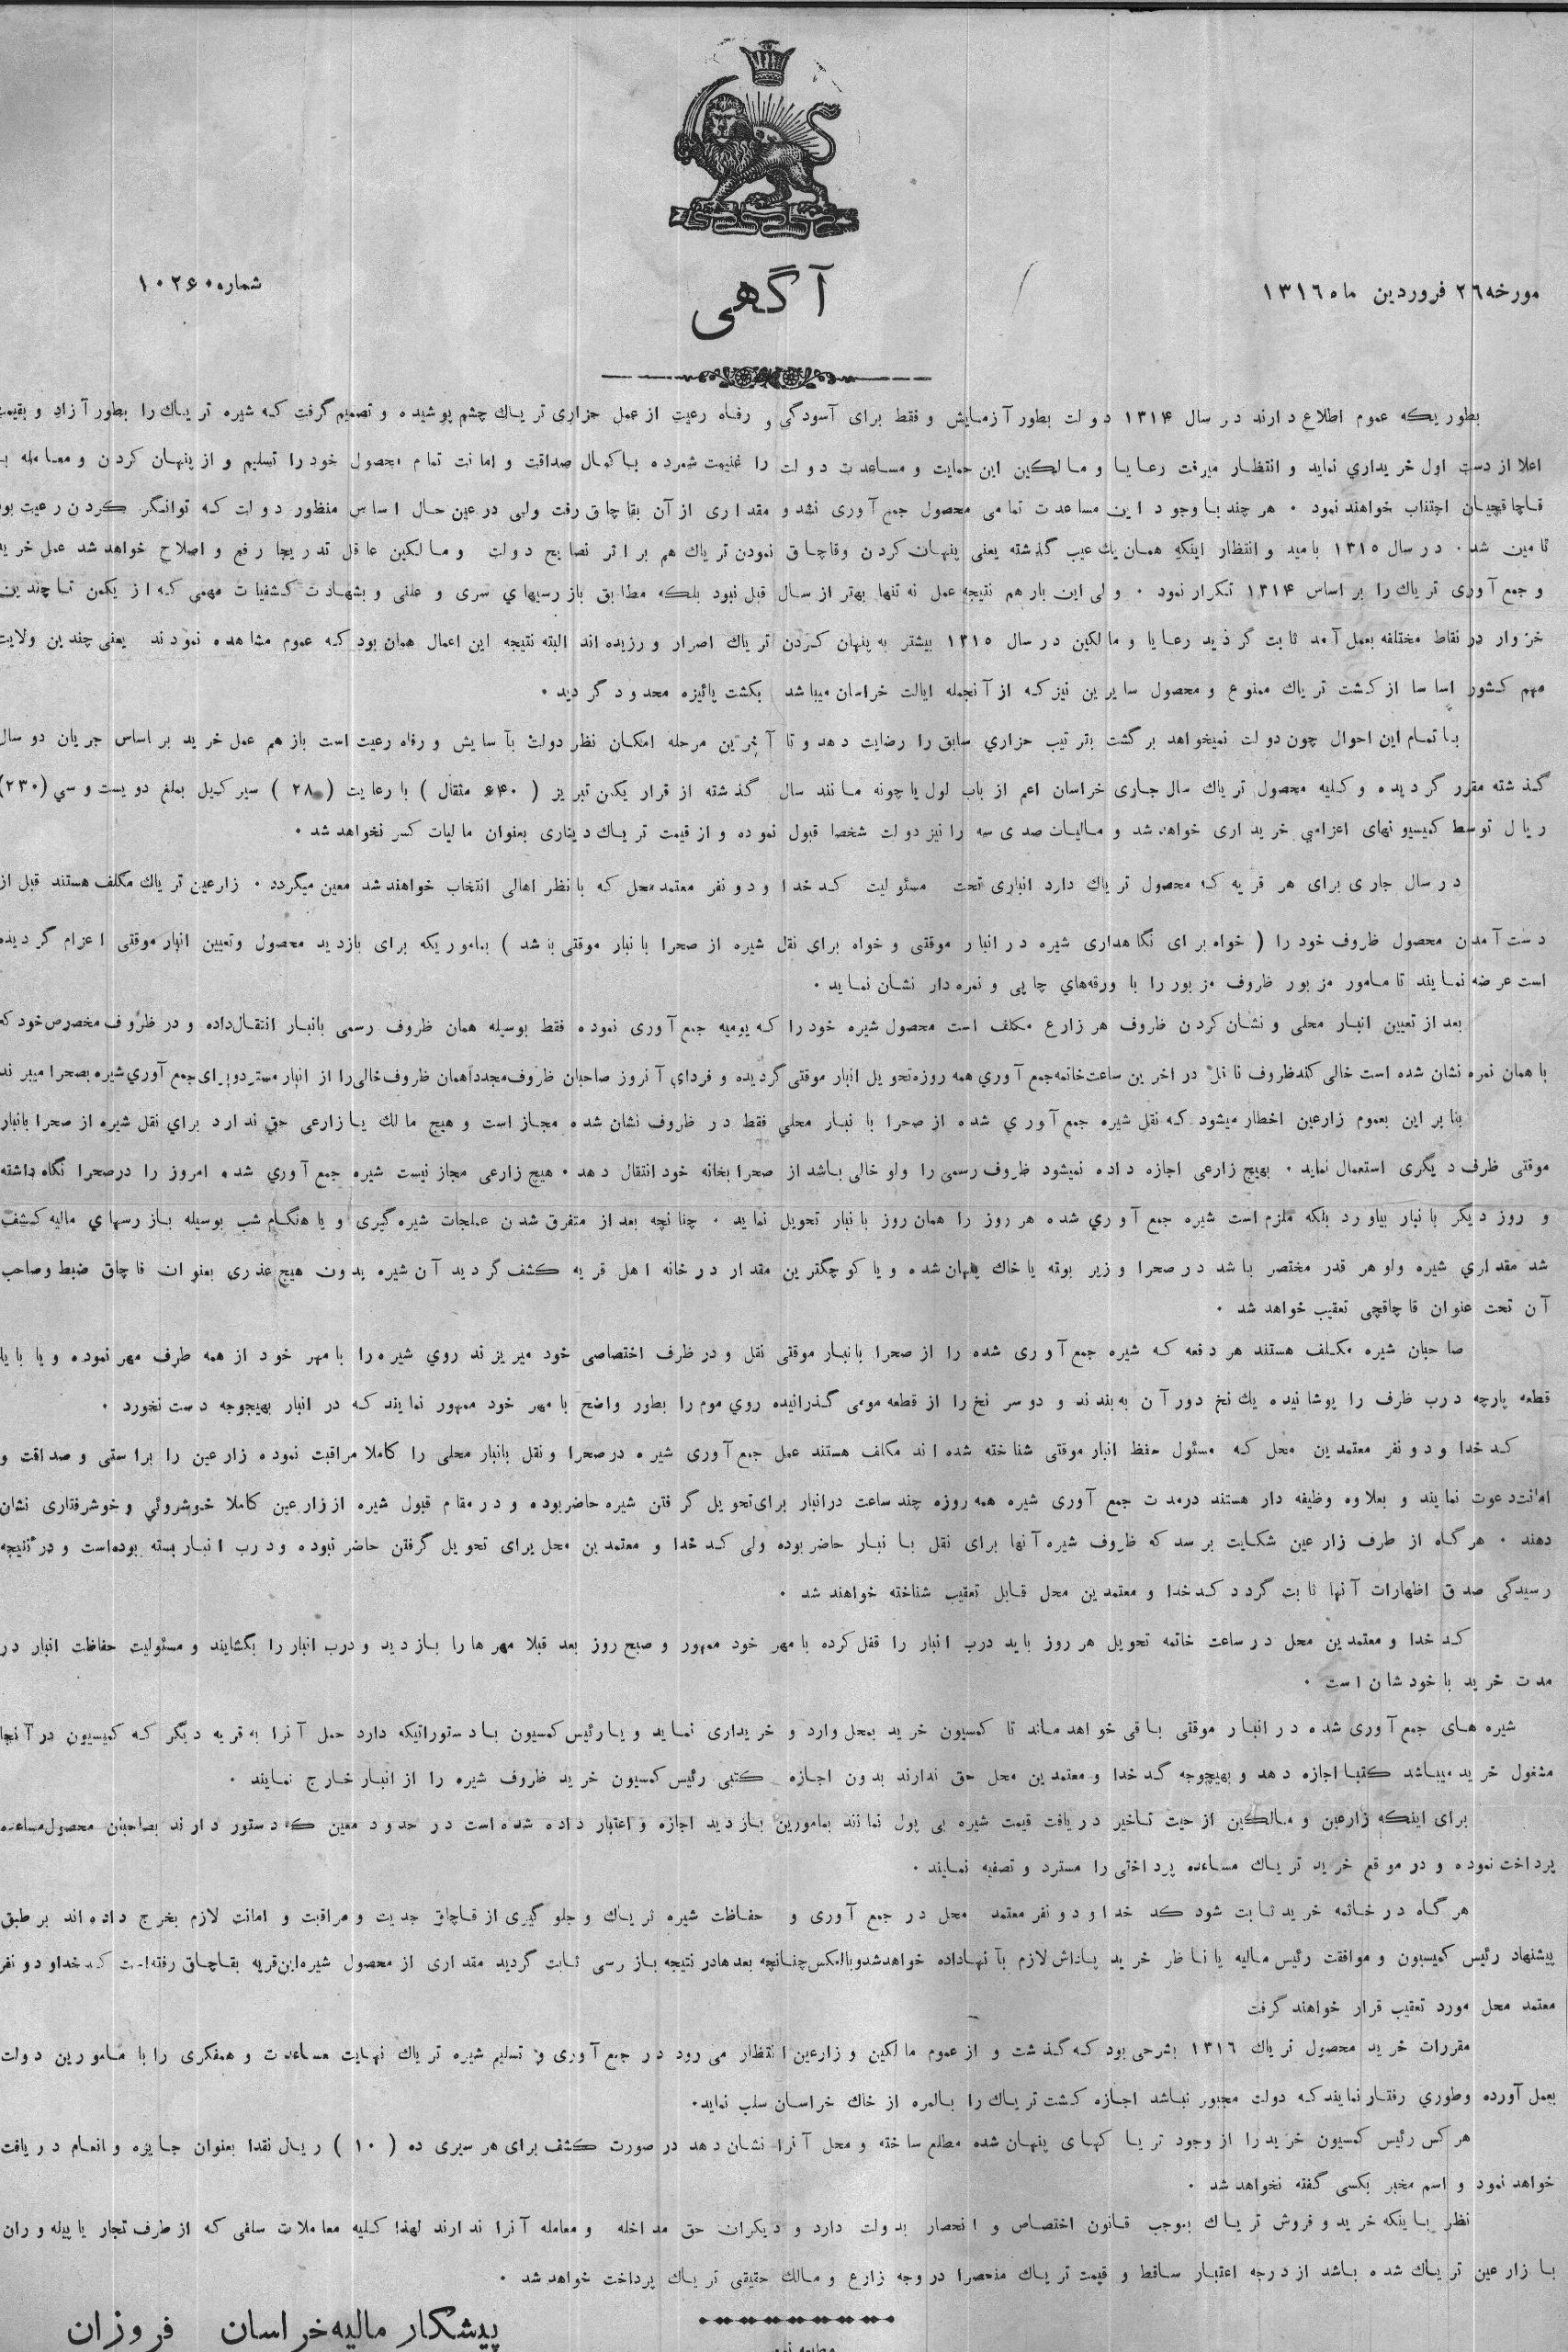 آگهی
مورخه ۲۶ فروردین ماه ۱۳۱۶
شماره ۱۰۲۶۰
بطوریکه عموم اطلاع دارند در سال ۱۳۱۴ دولت بطور آزمایش و فقط برای آسودگی و رفاه رعیت از عمل جزاری تریاك چشم پوشیده و تصمیم گرفت که شیره تریاك را بطور آزاد و بقیمت
اعلا از دست اول خریداری نماید و انتظار میرفت رعایا و مالکین این حمایت و مساعدت دولت را غنیمت شمرده باکمال صداقت و امانت تمام محصول خود را تسلیم و از پنهان کردن و معامله با
قاچاقچیان اجتناب خواهند نمود ۰ هر چند باوجود این مساعدت تمامی محصول جمع آوری نشد و مقداری از آن بقاچاق رفت ولی در عین حال اساس منظور دولت که توانگر کردن رعیت بود
تامین شد ۰ در سال ۱۳۱۵ بامید و انتظار اینکه همان یك عیب گذشته یعنی پنهان کردن وقاچاق نمودن تریاك هم بر اثر نصایح دولت و مالکین عاقل تدریجا رفع و اصلاح خواهد شد عمل خرید
و جمع آوری تریاك را بر اساس ۱۳۱۴ تکرار نمود ۰ ولی این بار هم نتیجه عمل نه تنها بهتر از سال قبل نبود بلکه مطابق بازرسیهاي سری و علنی و بشهادت کشفیات مهمی که از یکمن تا چندین
خروار در نقاط مختلفه بعمل آمد ثابت گردید رعایا و مالکین در سال ۱۳۱۵ بیشتر به پنهان کردن تریاك اصرار ورزیده اند البته نتیجه این اعمال همان بود که عموم مشاهده نمودند یعنی چندین ولایت
مهم کشور اساسا از کشت تریاك ممنوع و محصول سایرین نیز که از آنجمله ایالت خراسان میباشد بکشت پائیزه محدود گردید ۰
با تمام این احوال چون دولت نمیخواهد برگشت بترتیب جزاري سابق را رضایت دهد و تا آخرین مرحله امکان نظر دولت بآسایش و رفاه رعیت است باز هم عمل خرید بر اساس جریان دو سال
گذشته مقرر گردیده و کلیه محصول تریاك سال جاری خراسان اعم از باب لول یا چونه مانند سال گذشته از قرار یکمن تبریز ( ۶۴۰ مثقال ) با رعایت ( ۲۸ ) سیر کیل بمبلغ دویست و سي (۲۳۰)
ریال توسط کمیسیونهای اعزامی خریداری خواهد شد و مالیات صدی سه را نیز دولت شخصا قبول نموده و از قیمت تریاك دیناری بعنوان مالیات کسر نخواهد شد ۰
در سال جاری برای هر قریه که محصول تریاك دارد انباری تحت مسئولیت کدخدا و دو نفر معتمد محل که با نظر اهالی انتخاب خواهند شد معین میگردد ۰ زارعین تریاك مکلف هستند قبل از
دست آمدن محصول ظروف خود را ( خواه برای نگاهداری شیره در انبار موقتی و خواه برای نقل شیره از صحرا بانبار موقتی باشد ) بماموریکه برای بازدید محصول وتعیین انبار موقتی اعزام گردیده
است عرضه نمایند تا مامور مزبور ظروف مزبور را با ورقه‌هاي چاپی و نمره دار نشان نماید ۰
بعد از تعیین انبار محلی و نشان کردن ظروف هر زارع مکلف است محصول شیره خود را که یومیه جمع آوری نموده فقط بوسیله همان ظروف رسمی بانبار انتقال داده و در ظروف مخصوص خود که
با همان نمره نشان شده است خالی کند ظروف ناقل در اخرین ساعت خاتمه جمع آوري همه روزه تحویل انبار موقتی گردیده و فردای آنروز صاحبان ظروف مجدداً همان ظروف خالی را از انبار مسترد و برای جمع آوري شیره بصحرا میبرند
بنا بر این بعموم زارعین اخطار میشود که نقل شیره جمع آوري شده از صحرا بانبار محلي فقط در ظروف نشان شده مجاز است و هیچ مالك یا زارعی حق ندارد براي نقل شیره از صحرا بانبار
موقتی ظرف دیگری استعمال نماید ۰ بهیچ زارعی اجازه داده نمیشود ظروف رسمی را ولو خالی باشد از صحرا بخانه خود انتقال دهد ۰ هیچ زارعی مجاز نیست شیره جمع آوري شده امروز را در صحرا نگاه داشته
و روز دیگر بانبار بیاورد بلکه ملزم است شیره جمع آوري شده هر روز را همان روز بانبار تحویل نماید ۰ چنانچه بعد از متفرق شدن عملجات شیره گیری و یا هنگام شب بوسیله بازرسهاي مالیه کشف
شد مقداري شیره ولو هر قدر مختصر باشد در صحرا و زیر بوته یا خاك پنهان شده و یا کوچکترین مقدار در خانه اهل قریه کشف گردید آن شیره بدون هیچ عذری بعنوان قاچاق ضبط وصاحب
آن تحت عنوان قاچاقچی تعقیب خواهد شد ۰
صاحبان شیره مکلف هستند هر دفعه که شیره جمع آوری شده را از صحرا بانبار موقتی نقل و در ظرف اختصاصی خود میریزند روي شیره را با مهر خود از همه طرف مهر نموده و یا با یك
قطعه پارچه درب ظرف را پوشانیده یك نخ دور آن به بندند و دو سر نخ را از قطعه مومی گذرانیده روي موم را بطور واضح با مهر خود ممهور نمایند که در انبار بهیچوجه دست نخورد ۰
کدخدا و دو نفر معتمدین محل که مسئول حفظ انبار موقتی شناخته شده اند مکلف هستند عمل جمع آوری شیره در صحرا و نقل بانبار محلی را کاملا مراقبت نموده زارعین را براستی و صداقت و
امانت دعوت نمایند و بعلاوه وظیفه دار هستند درمدت جمع آوری شیره همه روزه چند ساعت درانبار برای تحویل گرفتن شیره حاضر بوده و در مقام قبول شیره از زارعین کاملا خوشروئي و خوشرفتاری نشان
دهند ۰ هرگاه از طرف زارعین شکایت برسد که ظروف شیره آنها برای نقل بانبار حاضر بوده ولی کدخدا و معتمدین محل برای تحویل گرفتن حاضر نبوده و درب انبار بسته بوده است و در نتیجه
رسیدگی صدق اظهارات آنها ثابت گردد کدخدا و معتمدین محل قابل تعقیب شناخته خواهند شد ۰
کدخدا و معتمدین محل در ساعت خاتمه تحویل هر روز باید درب انبار را قفل کرده با مهر خود ممهور و صبح روز بعد قبلا مهر ها را بازدید و درب انبار را بگشایند و مسئولیت حفاظت انبار در
مدت خرید با خودشان است ۰
شیره های جمع آوری شده در انبار موقتی باقی خواهد ماند تا کمسیون خرید بمحل وارد و خریداری نماید و یا رئیس کمسیون با دستوراتیکه دارد حمل آنرا به قریه دیگر که کمیسیون در آنجا
مشغول خرید میباشد کتبا اجازه دهد و بهیچوجه کدخدا و معتمدین محل حق ندارند بدون اجازه کتبی رئیس کمسیون خرید ظروف شیره را از انبار خارج نمایند ۰
برای اینکه زارعین و مالکین از حیث تاخیر دریافت قیمت شیره بی پول نمانند بمامورین بازدید اجازه و اعتبار داده شده است در حدود معین که دستور دارند بصاحبان محصول مساعده
پرداخت نموده و در موقع خرید تریاك مساعده پرداختی را مسترد و تصفیه نمایند ۰
هرگاه در خاتمه خرید ثابت شود کدخدا و دو نفر معتمد محل در جمع آوری و حفاظت شیره تریاك و جلوگیری از قاچاق جدیت و مراقبت و امانت لازم بخرج داده اند بر طبق
پیشنهاد رئیس کمیسیون و موافقت رئیس مالیه یا ناظر خرید پاداش لازم بآنها داده خواهد شد و بالعکس چنانچه بعدها در نتیجه بازرسی ثابت گردید مقداری از محصول شیره این قریه بقاچاق رفته است کدخدا و دو نفر
معتمد محل مورد تعقیب قرار خواهند گرفت
مقررات خرید محصول تریاك ۱۳۱۶ بشرحی بود که گذشت و از عموم مالکین و زارعین انتظار می رود در جمع آوری و تسلیم شیره تریاك نهایت مساعدت و همفکری را با مامورین دولت
بعمل آورده وطوري رفتار نمایند که دولت مجبور نباشد اجازه کشت تریاك را بالمره از خاك خراسان سلب نماید۰
هر کس رئیس کمسیون خرید را از وجود تریاکهای پنهان شده مطلع ساخته و محل آنرا نشان دهد در صورت کشف برای هر سیری ده ( ۱۰ ) ریال نقدا بعنوان جایزه و انعام دریافت
خواهد نمود و اسم مخبر بکسی گفته نخواهد شد ۰
نظر باینکه خرید و فروش تریاك بموجب قانون اختصاص و انحصار بدولت دارد و دیگران حق مداخله و معامله آنرا ندارند لهذا کلیه معاملات سلفی که از طرف تجار یا پیله وران
با زارعین تریاك شده باشد از درجه اعتبار ساقط و قیمت تریاك منحصرا در وجه زارع و مالك حقیقی تریاك پرداخت خواهد شد ۰
پیشکار مالیه خراسان فروزان